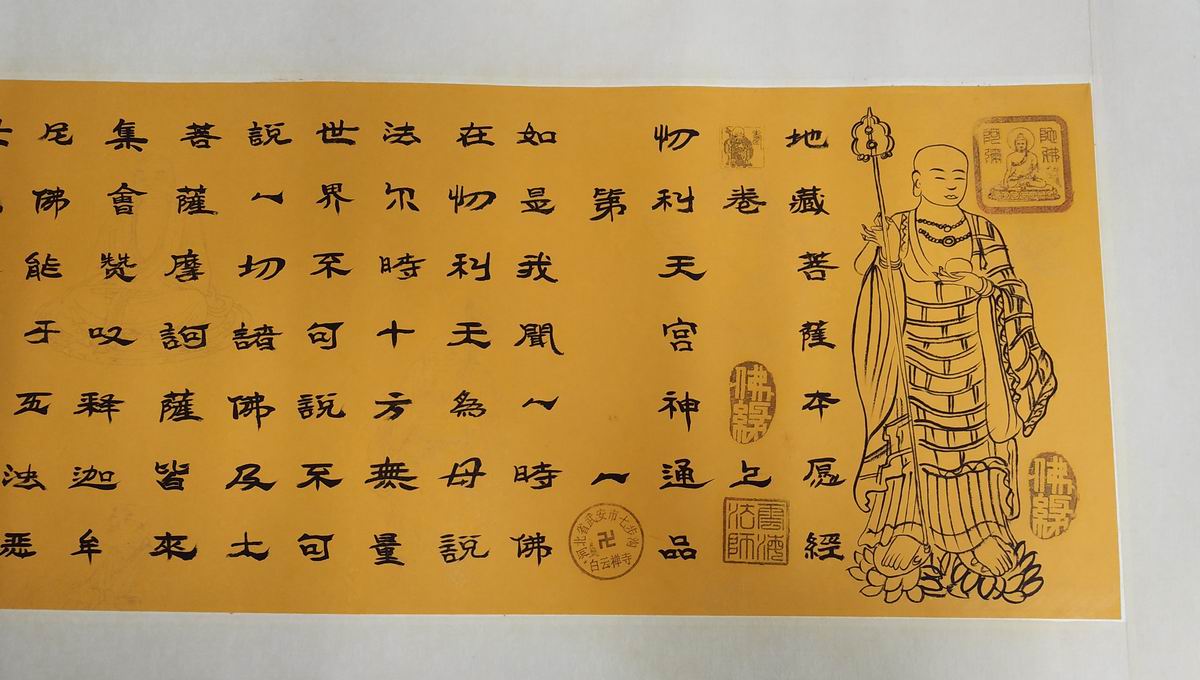 地藏菩薩本愿經
卷上
忉利天宫神通品
第一
如是我聞一時佛
在忉利天為母說
法尔時十方無量
世界不可說不可
說一切諸佛及大
菩薩摩訶薩皆來
集會赞叹释迦牟
尼佛能于五浊恶
佛緣
佛緣
雲海法師
河北省武安市七步沟
白云禅寺